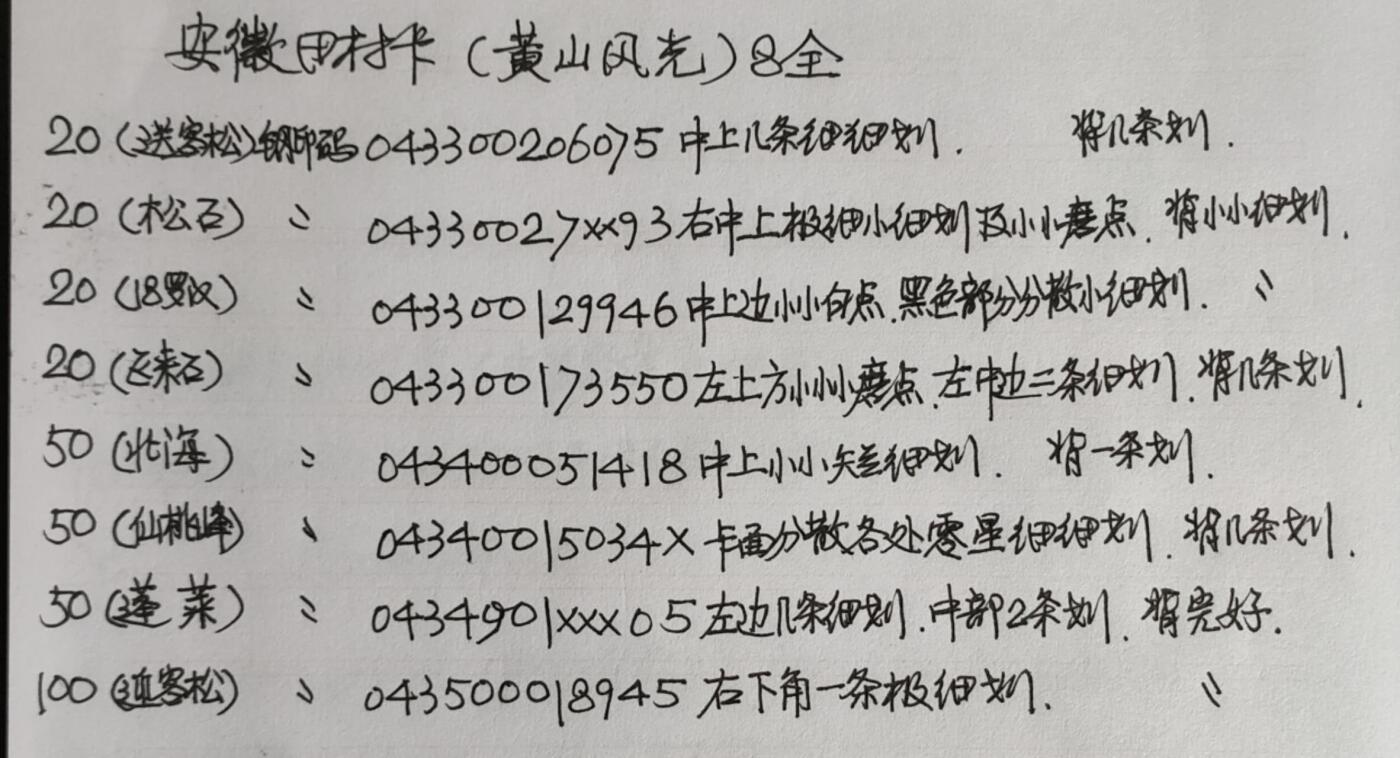 安徽田村卡(黄山风光)8全
20(送客松)钢印码043300206075中上几条细细划. 背几条划.
20(松石) 〃 04330027xx93右中上极细小细划及小小磨点. 背小小细划.
20(18罗汉) 〃 043300129946中上边小小白点.黑色部分分散小细划. 〃
20(飞来石) 〃 043300173550左上方小小小磨点.左中边三条细划.背几条划.
50(北海) 〃 043400051418中上小小短细划. 背一条划.
50(仙桃峰) 〃 04340015034X卡面分散各处零星细细划.背几条划.
50(蓬莱) 〃 0434901xxx05左边几条细划.中部2条划.背完好.
100(迎客松) 〃 043500018945右下角一条极细划. 〃